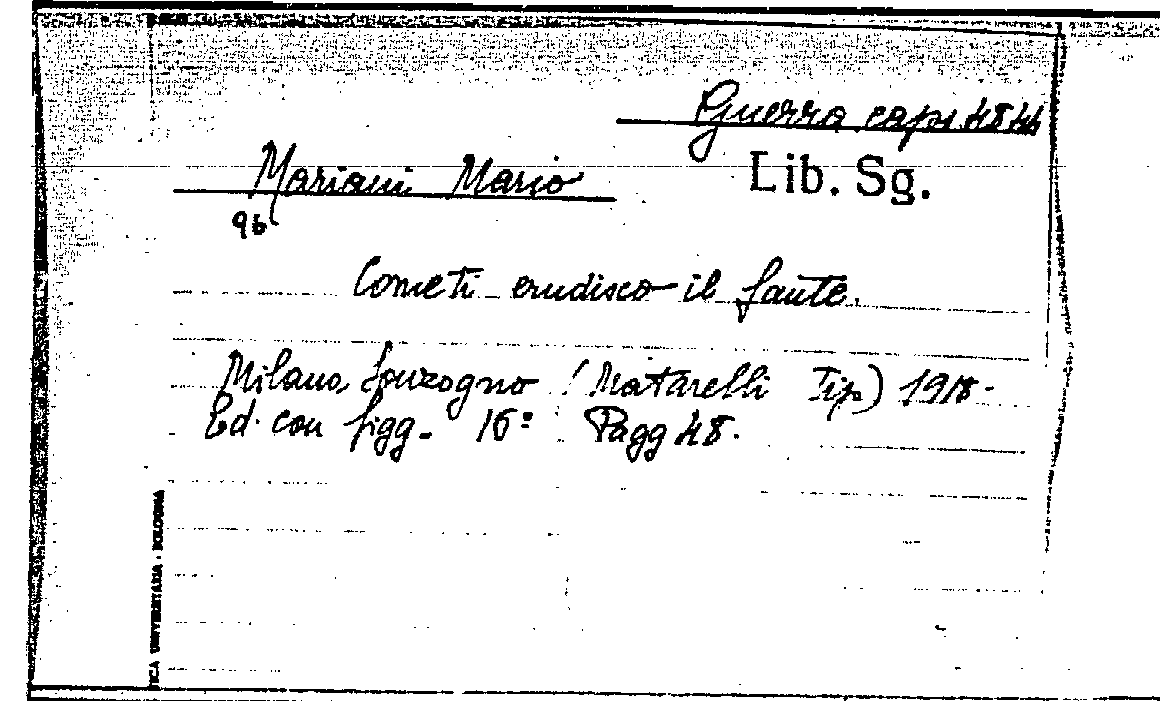 Guerra caps 4844
Mariani Mario
Lib. Sg.
96
Come ti erudisco il fante.
Milano Sonzogno (Matarelli Tip) 1918-
Ed. con figg. 16° Pagg 48.
TICA UNIVERSITARIA - BOLOGNA